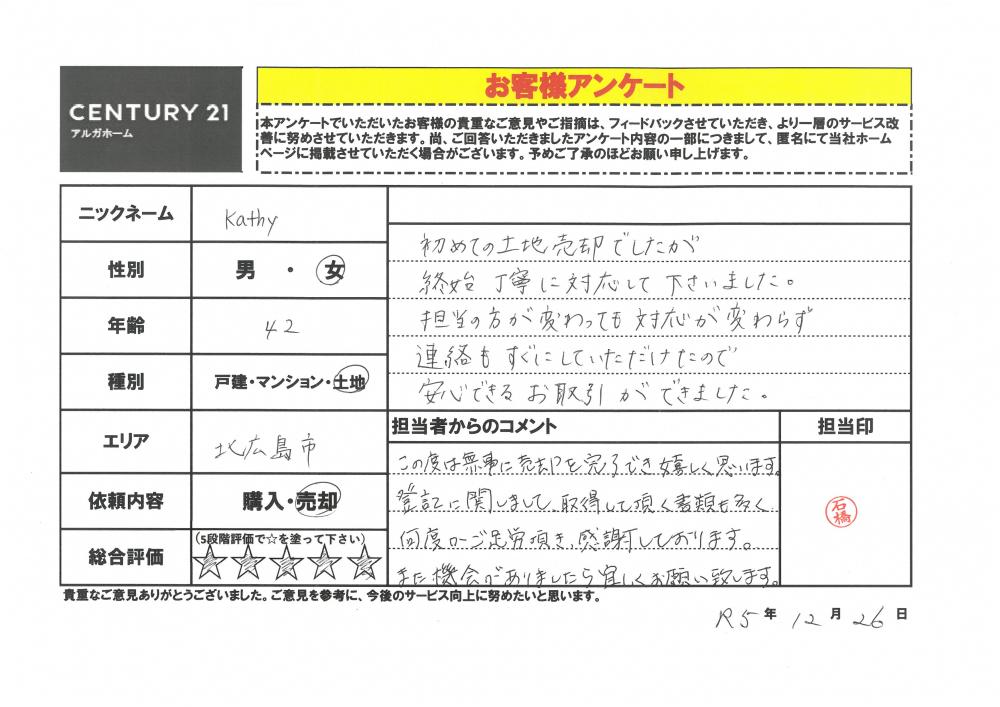 CENTURY 21
アルガホーム
お客様アンケート
本アンケートでいただいたお客様の貴重なご意見やご指摘は、フィードバックさせていただき、より一層のサービス改
善に努めさせていただきます。尚、ご回答いただきましたアンケート内容の一部につきまして、匿名にて当社ホーム
ページに掲載させていただく場合がございます。予めご了承のほどお願い申し上げます。
ニックネーム
Kathy
性別
男 ・ 女
年齢
42
種別
戸建・マンション・土地
エリア
北広島市
依頼内容
購入・売却
総合評価
(5段階評価で☆を塗って下さい)
初めての土地売却でしたが
終始丁寧に対応して下さいました。
担当の方が変わっても対応が変わらず
連絡もすぐにしていただけたので
安心できるお取引ができました。
担当者からのコメント
この度は無事に売却を完了でき嬉しく思います。
登記に関しまして、取得して頂く書類も多く
何度もご足労頂き、感謝しております。
また機会がありましたら宜しくお願い致します。
担当印
石橋
貴重なご意見ありがとうございました。ご意見を参考に、今後のサービス向上に努めたいと思います。
R5 年 12 月 26 日